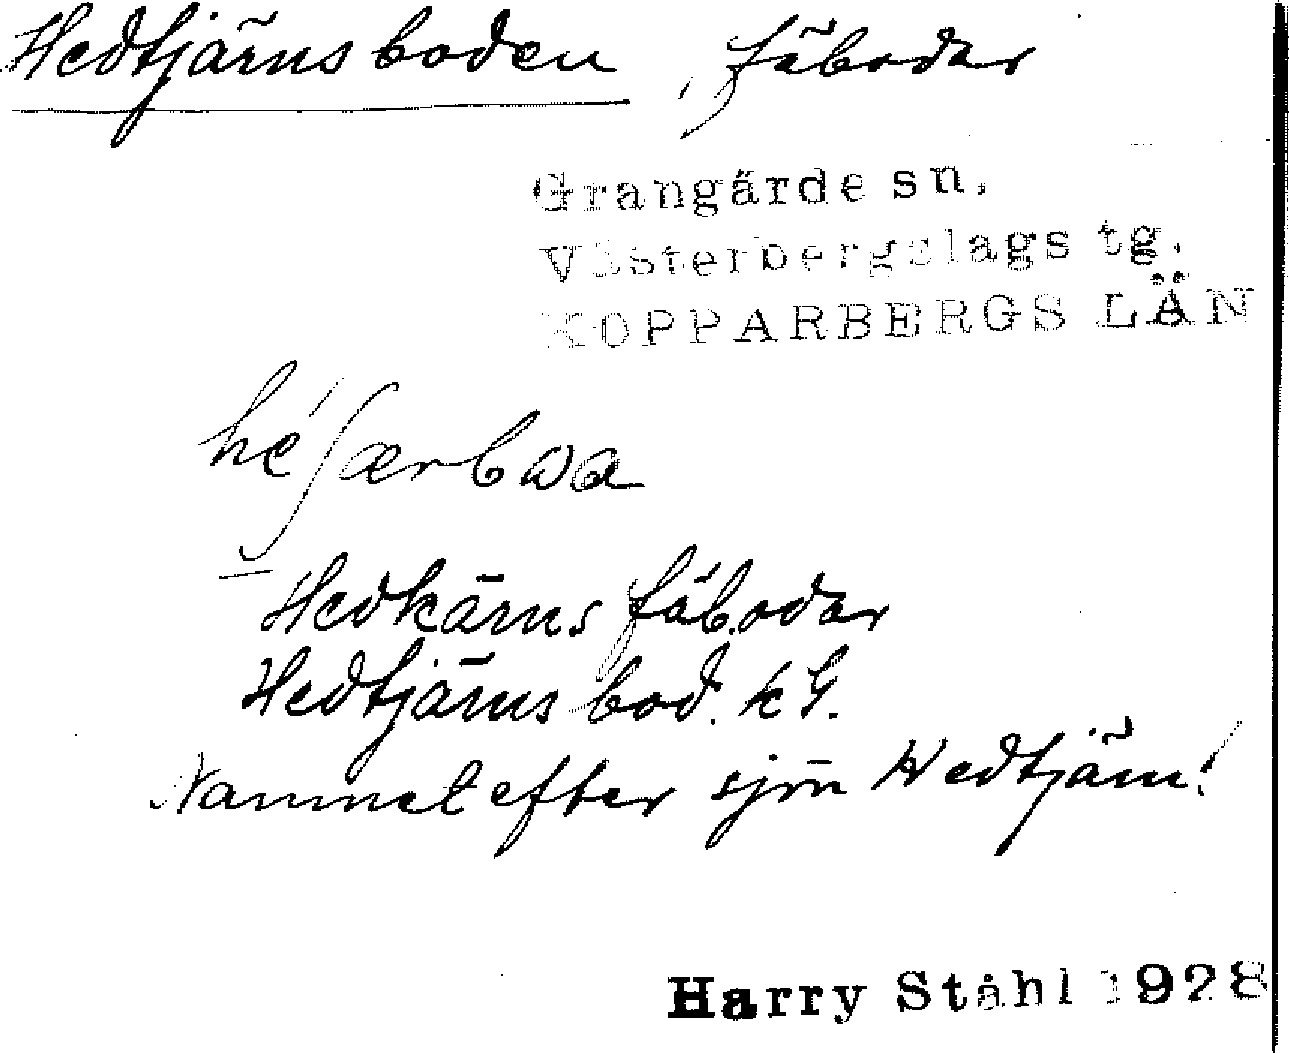 Hedtjärnsboden, fäbodar
Grangärde sn.
Västerbergslags tg.
KOPPARBERGS LÄN
Hedkärns fäbodar
Hedtjärnsbod. kG.
Namnet efter sjön Hedtjärn!
Harry Ståhl 1928